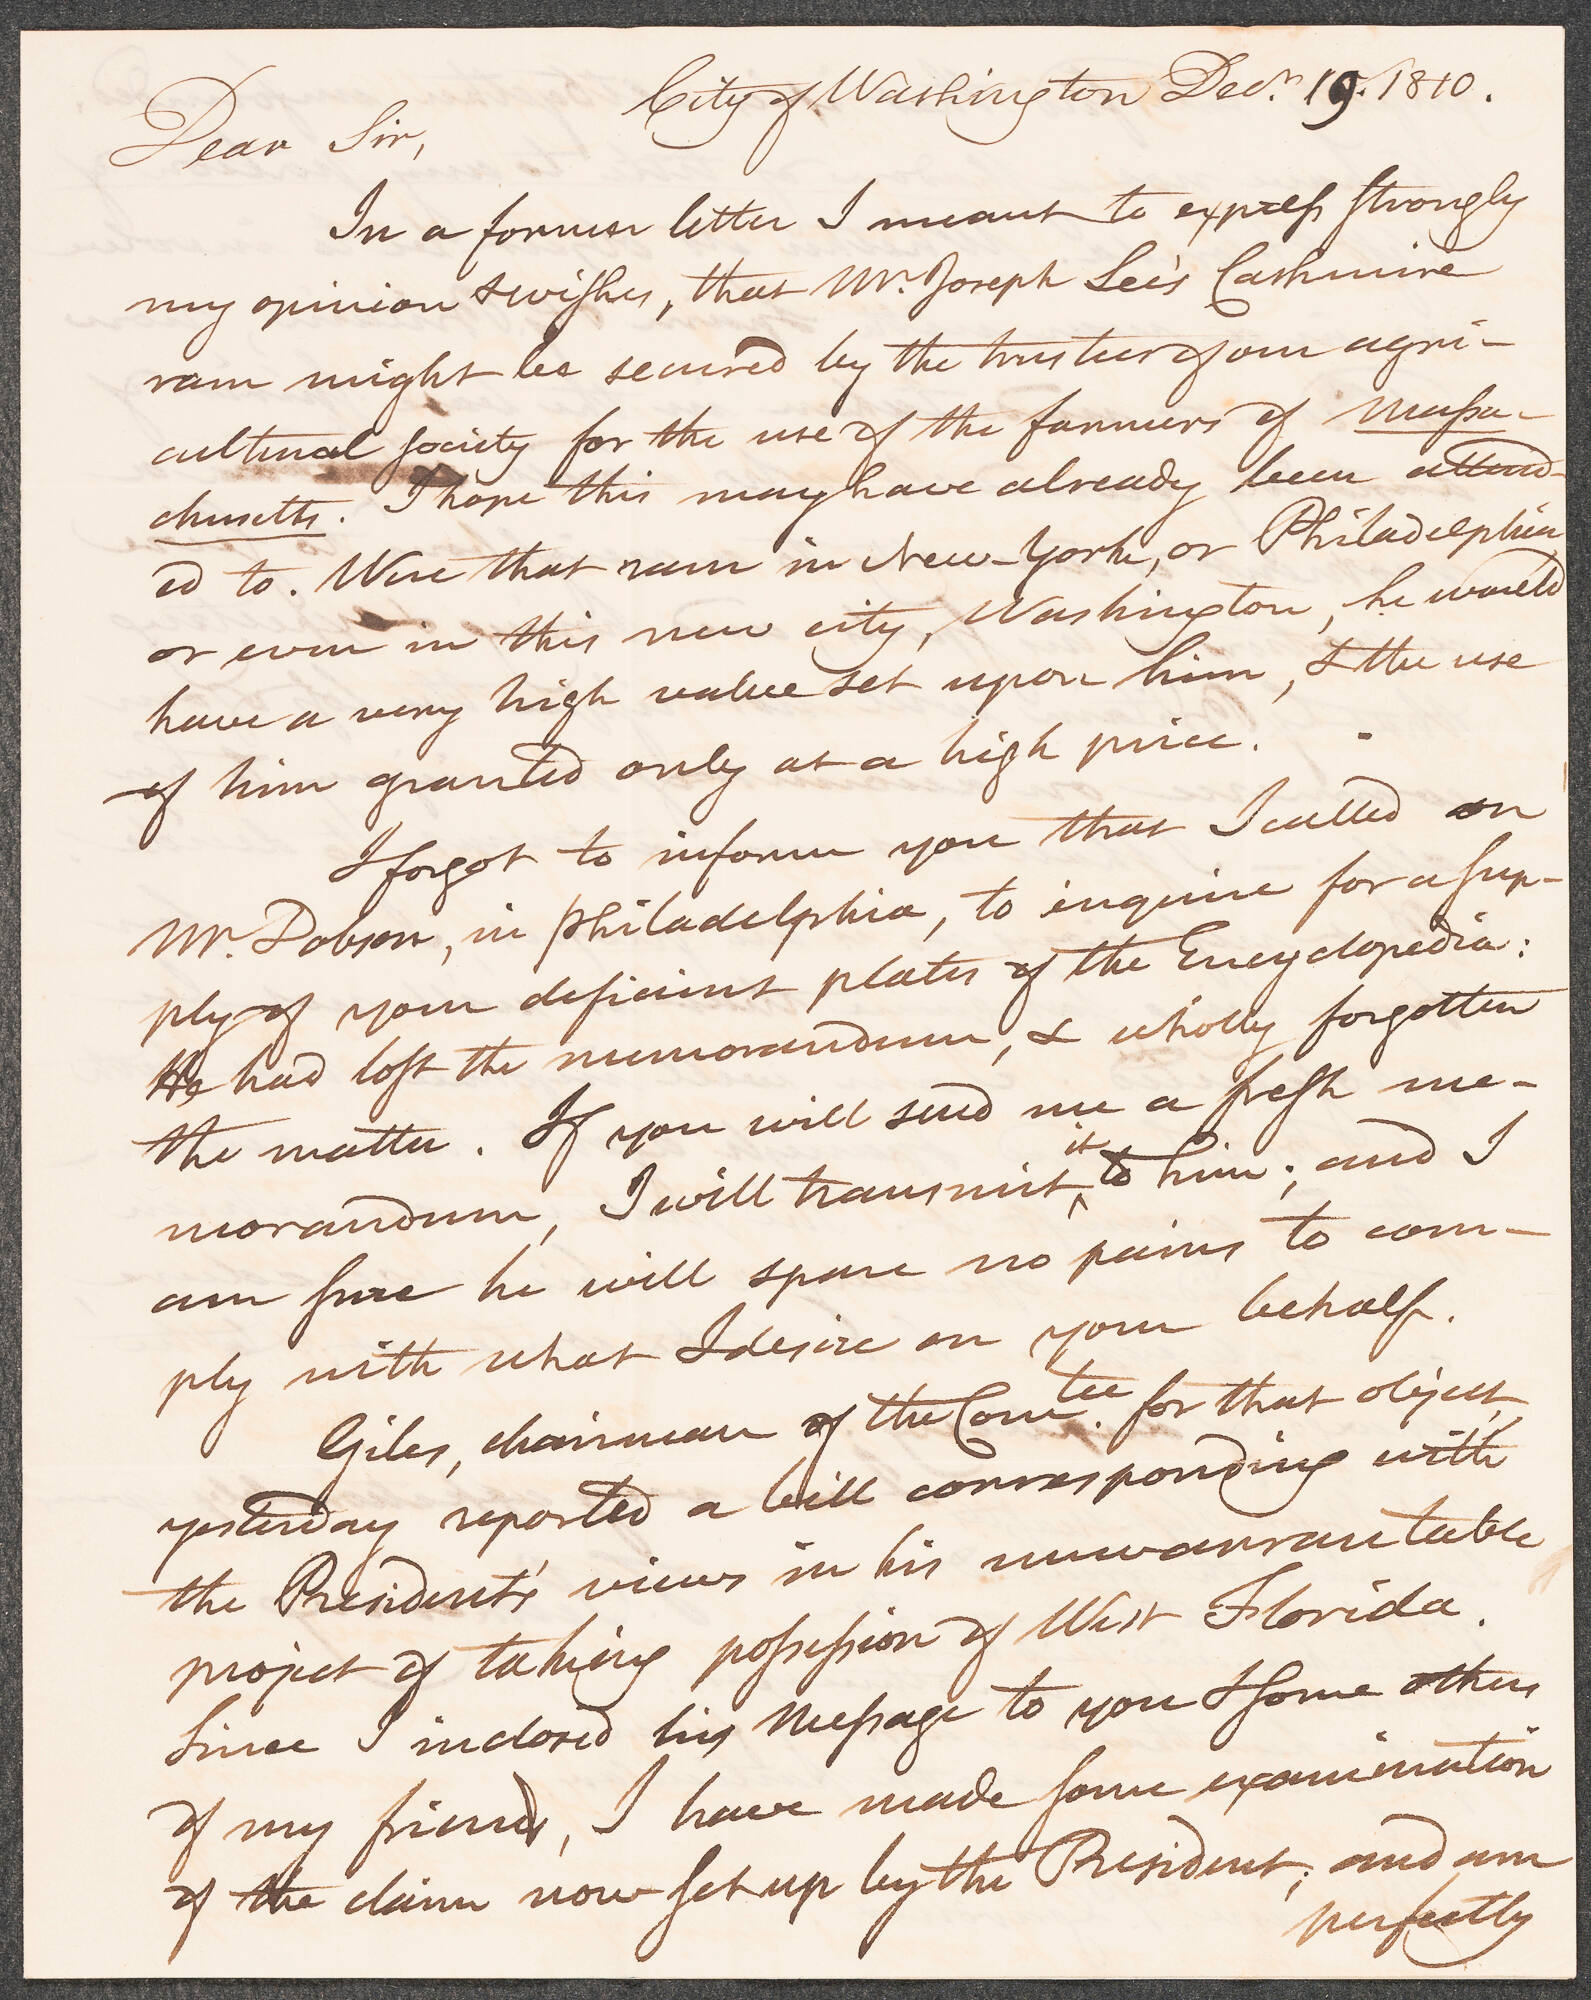 City of Washington Decr. 19. 1810.
Dear Sir,
In a former letter I meant to express strongly
my opinion & wishes, that Mr. Joseph Lee's Cashmire
ram might be secured by the trustees of our agri-
cultural society for the use of the farmers of Massa-
chusetts. I hope this may have already been attend-
ed to. Were that ram in New-York, or Philadelphia
or even in this new city, Washington, he would
have a very high value set upon him, & the use
of him granted only at a high price.
I forgot to inform you that I called on
Mr. Dobson, in Philadelphia, to inquire for a sup-
ply of your deficient plates of the Encyclopedia:
He had lost the memorandum, & wholly forgotten
the matter. If you will send me a fresh me-
morandum, I will transmit it to him; and I
am sure he will spare no pains to com-
ply with what I desire on your behalf.
Giles, chairman of the Comtee. for that object,
yesterday reported a bill corresponding with
the President's views in his unwarrantable
project of taking possession of West Florida.
Since I inclosed his message to you & some others
of my friends, I have made some examination
of the claim now set up by the President; and am
perfectly